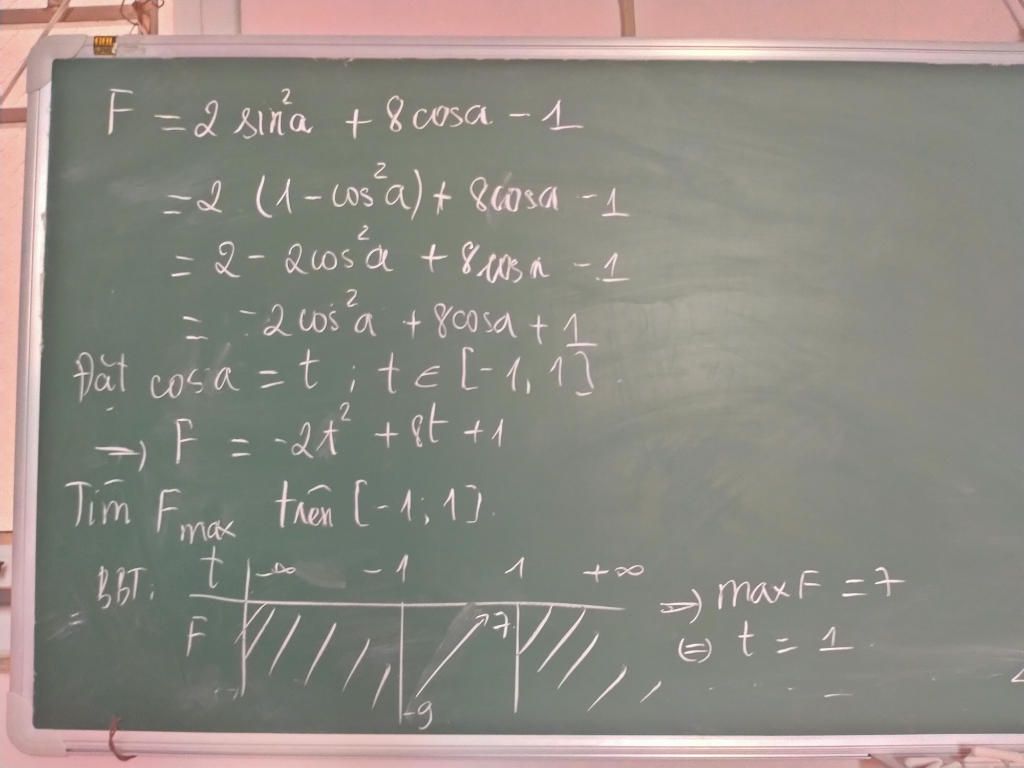 F = 2 sin²a + 8cosa - 1
= 2 (1 - cos²a) + 8cosa - 1
= 2 - 2cos²a + 8cosa - 1
= -2cos²a + 8cosa + 1
Đặt cosa = t ; t ∈ [-1, 1]
=> F = -2t² + 8t + 1
Tìm F max trên [-1; 1].
BBT: t -∞ -1 1 +∞ => maxF = 7
F -9 7 (=) t = 1